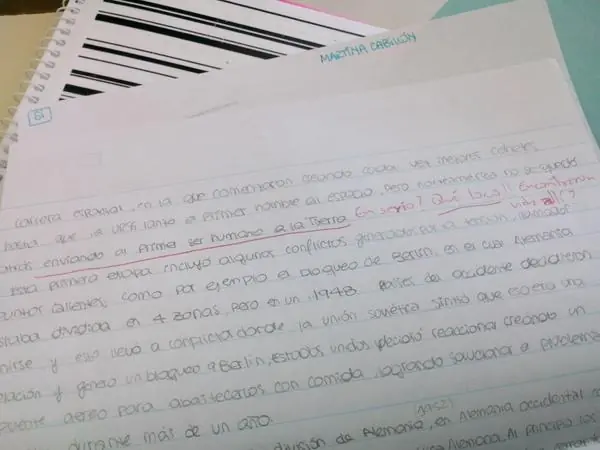 MARTINA CABILLÓN
carrera espacial, en la que comenzaron creando cada vez mejores cohetes
hasta que la URSS lanzó a primer hombre al espacio, pero norteamérica no se quedó
atrás enviando al primer ser humano a la Tierra En serio? Qué loco!! Encontraron
vida allí?
Esta primera etapa incluyó algunos conflictos generados por la tensión, llamados
puntos calientes, como por ejemplo el bloqueo de Berlín, en el cual Alemania
estaba dividida en 4 zonas, pero en un 1948 países del occidente decidieron
unirse y esto llevó a conflicto donde la unión soviética sintió que eso era una
y generó un bloqueo a Berlín, Estados unidos decidió reaccionar creando un
puente aereo para abastecerlos con comida logrando solucionar el problema
durante más de un año.
división de Alemania, en Alemania occidental
Alemania. Al principio los